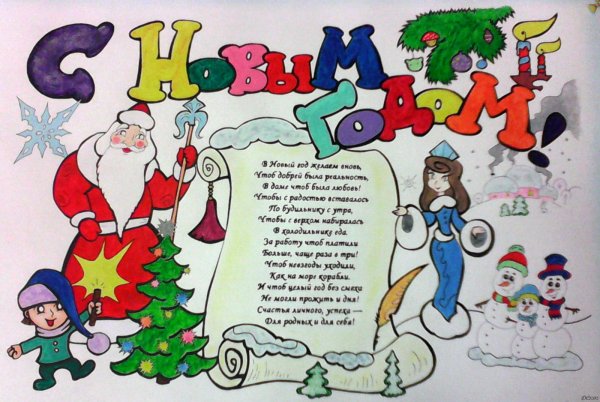 С Новым
Годом!
В Новый год желаем вновь,
Чтоб добрей была реальность,
В доме чтоб была любовь!
Чтобы с радостью вставалось
По будильнику с утра,
Чтобы с верхом набиралась
В холодильнике еда.
За работу чтоб платили
Больше, чаще раза в три!
Чтоб невзгоды уходили,
Как на море корабли.
И чтоб целый год без смеха
Не могли прожить и дня!
Счастья личного, успеха —
Для родных и для себя!